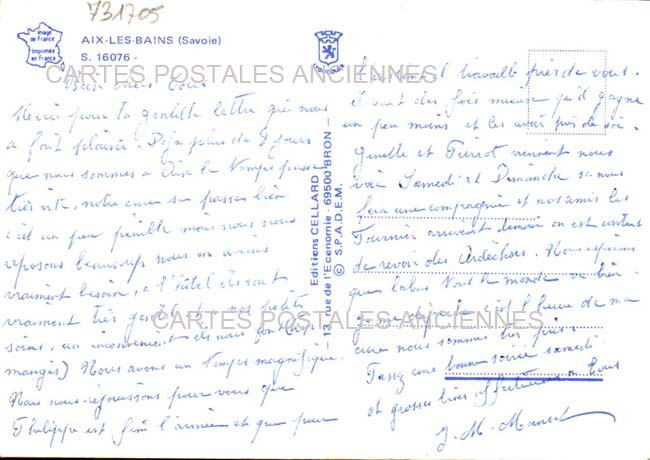 731705
Image de France
Imprimée en France
AIX-LES-BAINS (Savoie)
S. 16076 -
CARTES POSTALES ANCIENNES
Bien chers tous
Merci pour ta gentille lettre qui nous
a fait plaisir. Déjà plus de 8 jours
que nous sommes à Aix le temps passe
très vite, notre cure se passe bien
c'est un peu pénible mais nous nous
reposons beaucoup nous en avions
vraiment besoin, à l'hôtel ils sont
vraiment très gentils
nos petits
soins, un inconvénient ils nous font
manger) Nous avons un temps magnifique.
Nous nous réjouissons pour vous que
Philippe est fini l'armée et que pour
Editions CELLARD
113, rue de l'Economie - 69500 BRON -
© S.P.A.D.E.M.
travaille près de vous.
il vaut des fois mieux qu'il gagne
un peu moins et les avoir près de soi.
Ginette et Pierrot viennent nous
voir Samedi et Dimanche ça nous
fera une compagnie et nos amis les
Fournier arrivent demain on est content
de revoir des Ardéchois. Nous espérons
que labas tout le monde va bien.
je me dépêche c'est l'heure de ma
cure nous sommes très pris
Passez une bonne soirée samedi
et grosses bises affectueuses à tous
CARTES POSTALES ANCIENNES
J. M.